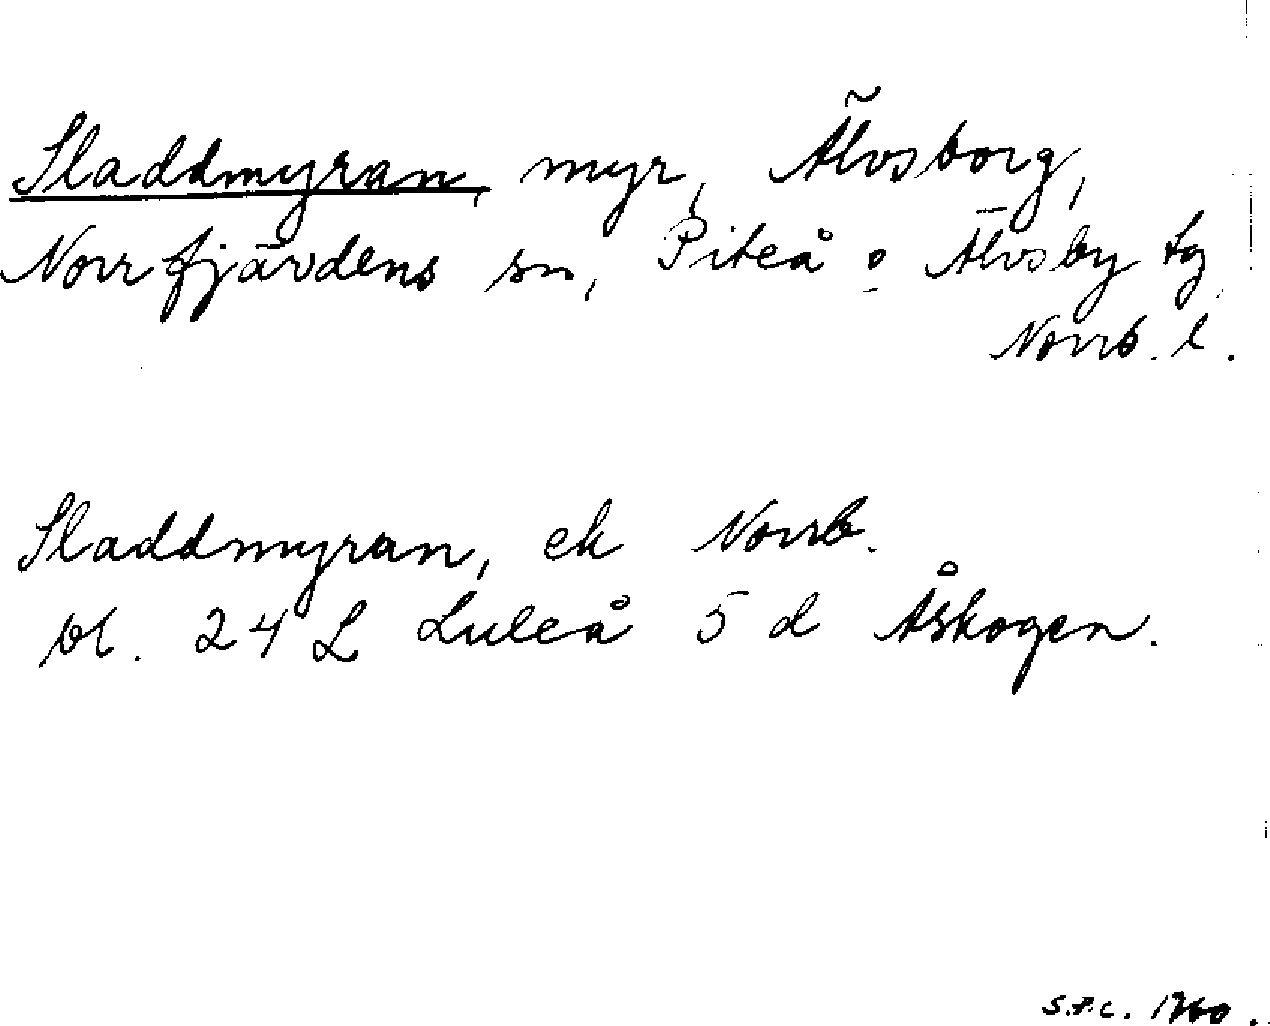 Sladdmyran, myr, Älvsborg,
Norrfjärdens sn, Piteå o Älvsby tg
Norrb. l.
Sladdmyran, ek Norrb.
bl. 24 L Luleå 5 d Åskogen.
S.P.C. 1960.